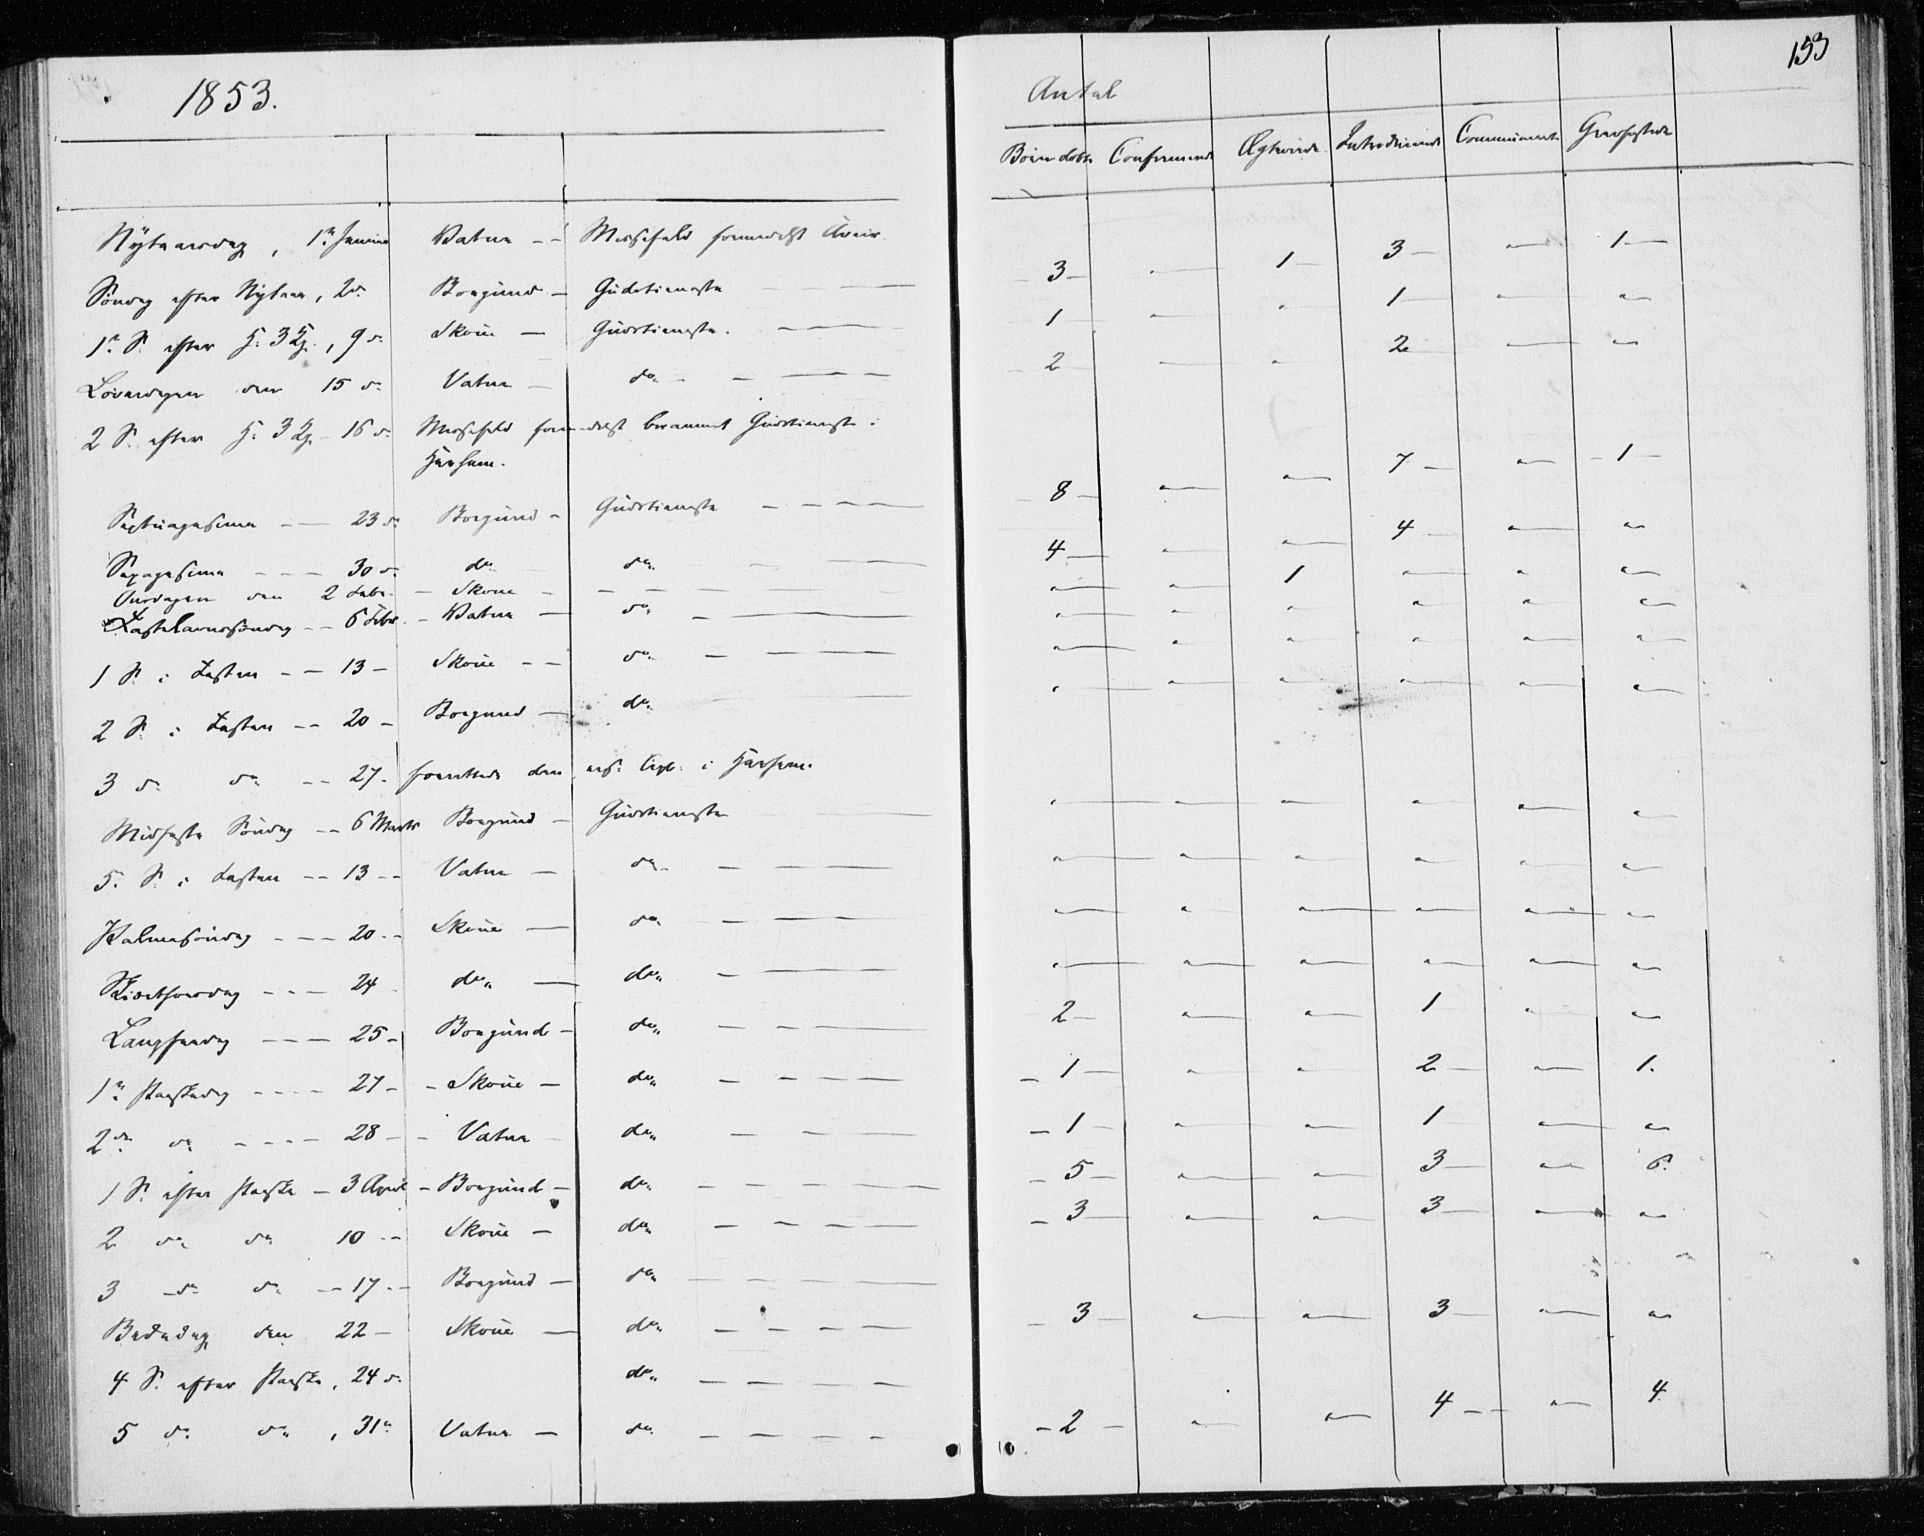 153
1853.
Antal
Børn døbte Confirmerede Ægteviede Introducerede Communicant. Gravfæstede
Nytaarsdag, 1ste Januar Vatne -- Messefald formedelst
3 — 1 3 — 1
Søndag efter Nytaar, 2d. Borgund — Gudstieneste
1 — " 1 — "
1e S. efter H. 3 Kg., 9 d. Skoue — Gudstieneste.
2 — " 2 — "
Løverdagen den 15 d. Vatne — do
2 S. efter H. 3 Kg. 16 d. Messefald formedelst berammet Gudstieneste i
Harham.
8 — " 7 — 1
Septuagesima — 23 d. Borgund — Gudstieneste
4 — — 4 — "
Sexagesima — 30 d. do do
" — 1 — " "
Onsdagen den 2 Febr. — Skoue
Fastelavnssøndag — 6 Febr. — Vatne — do
1 S. i Fasten — 13 — Skoue — do
2 S. i Fasten — 20 — Borgund — do
3 do do — 27. forrettede den i Harham.
Midfaste Søndag — 6 Marts Borgund — Gudstieneste
5. S. i Fasten — 13 — Vatne — do
Palmesøndag — 20 — Skoue — do
Skiærthorsdag — 24 do — do
Langfredag — 25 — Borgund — do
2 — " 1 " "
1ste Paaskedag — 27 — Skoue — do
1 — " 2 — 1.
2den do — 28 — Vatne do
1 — " 1 — "
1 S. efter Paaske — 3 April — Borgund — do
5 — " 3 — 6.
2 do do 10 — Skoue — do
3 — " 3 — "
3 do do — 17 — Borgund — do
Bededag den 22 — Skoue — do
3 — " 3 — "
4 S. efter Paaske, 24 d. do
5 do do, 31. Vatne — do
2 — — 4 — 4